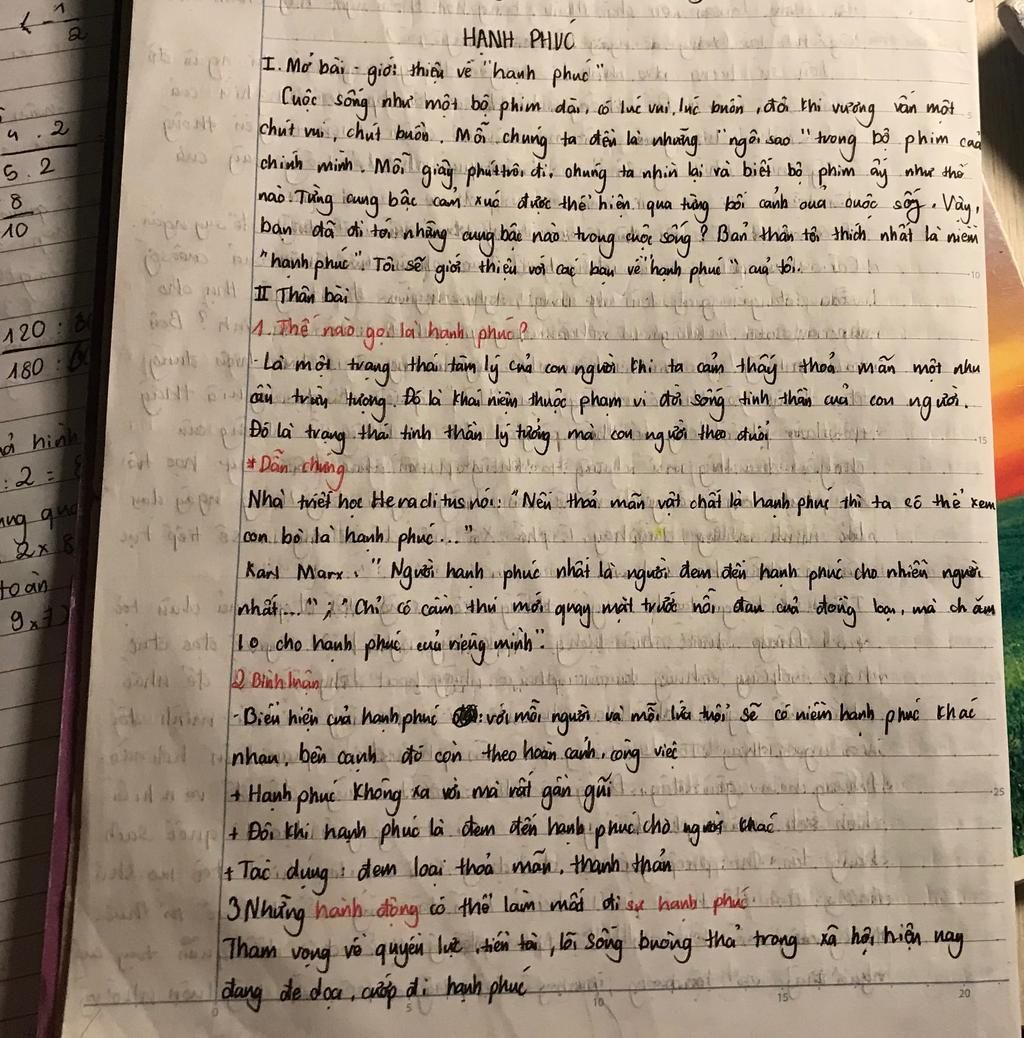 < - 1/2
4 . 2
5 . 2
8
10
120 :
180 :
hình
: 2 =
2 x 8
toàn
9 x 7
HẠNH PHÚC
I. Mở bài - giới thiệu về "hạnh phúc"
Cuộc sống như một bộ phim dài, có lúc vui, lúc buồn, đôi khi vương vấn một
chút vui, chút buồn. Mỗi chúng ta đều là những "ngôi sao" trong bộ phim của
chính mình. Mỗi giây phút trôi đi, chúng ta nhìn lại và biết bộ phim ấy như thế
nào. Từng cung bậc cảm xúc được thể hiện qua từng bối cảnh của cuộc sống. Vậy,
bạn đã đi tới những cung bậc nào trong cuộc sống? Bản thân tôi thích nhất là niềm
"hạnh phúc". Tôi sẽ giới thiệu với các bạn về "hạnh phúc" của tôi.
II Thân bài
1. Thế nào gọi là hạnh phúc?
- Là một trạng thái tâm lý của con người khi ta cảm thấy thoả mãn một nhu
cầu trừu tượng. Đó là khái niệm thuộc phạm vi đời sống tinh thần của con người.
Đó là trạng thái tinh thần lý tưởng mà con người theo đuổi
* Dẫn chứng
Nhà triết học Heraclitus nói: "Nếu thoả mãn vật chất là hạnh phúc thì ta có thể xem
con bò là hạnh phúc..."
Karl Marx: "Người hạnh phúc nhất là người đem đến hạnh phúc cho nhiều người
nhất..."; "Chỉ có cầm thú mới quay mặt trước nỗi đau của đồng loại, mà chăm
lo cho hạnh phúc của riêng mình".
2 Bình luận
- Biểu hiện của hạnh phúc : với mỗi người và mỗi lứa tuổi sẽ có niềm hạnh phúc khác
nhau, bên cạnh đó còn theo hoàn cảnh, công việc
+ Hạnh phúc không xa vời mà rất gần gũi
+ Đôi khi hạnh phúc là đem đến hạnh phúc cho người khác
+ Tác dụng: đem loại thoả mãn, thanh thản
3 Những hành động có thể làm mất đi sự hạnh phúc
Tham vọng về quyền lực, tiền tài, lối sống buông thả trong xã hội hiện nay
đang đe doạ, cướp đi hạnh phúc
10
15
25
0 5 10 15 20